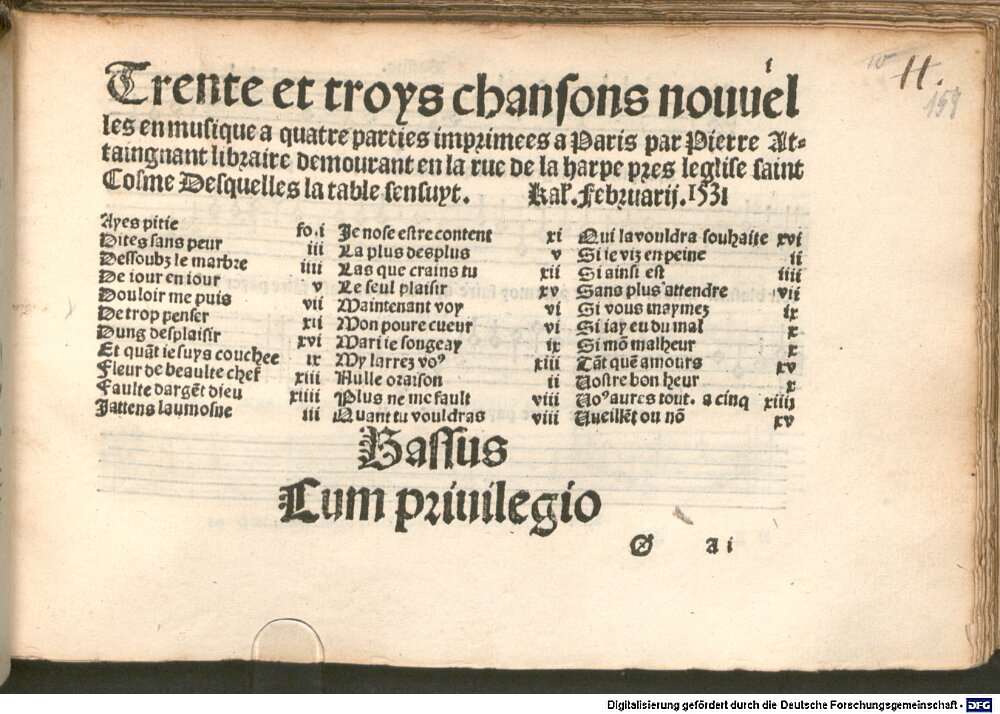 i
Trente et troys chansons nouuel
les en musique a quatre parties imprimees a Paris par Pierre At-
taingnant libraire demourant en la rue de la harpe pres leglise saint
Cosme Desquelles la table sensuyt. Kal'. Februarij. 1531
11.
159
Ayes pitie fo. i
Dites sans peur iii
Dessoubz le marbre iiii
De iour en iour v
Douloir me puis vii
De trop penser xii
Dung desplaisir xvi
Et quãt ie suys couchee ix
Fleur de beaulte chef xiii
Faulte dargẽt dieu xiiii
Jattens laumosne iii
Je nose estre content xi
La plus desplus v
Las que crains tu xii
Le seul plaisir xv
Maintenant voy vi
Mon poure cueur vi
Mari ie songeay ix
My larrez voꝰ xiii
Nulle oraison ii
Plus ne me fault viii
Quant tu vouldras viii
Qui la vouldra souhaite xvi
Si ie viz en peine ii
Si ainsi est iiii
Sans plus attendre vii
Si vous maymez ix
Si iay eu du mal x
Si mõ malheur x
Tãt que amours xv
Vostre bon heur x
Voꝰ aures tout. a cinq xiiij
Vueillẽt ou nõ xv
Bassus
Cum priuilegio
a i
Digitalisierung gefördert durch die Deutsche Forschungsgemeinschaft - DFG